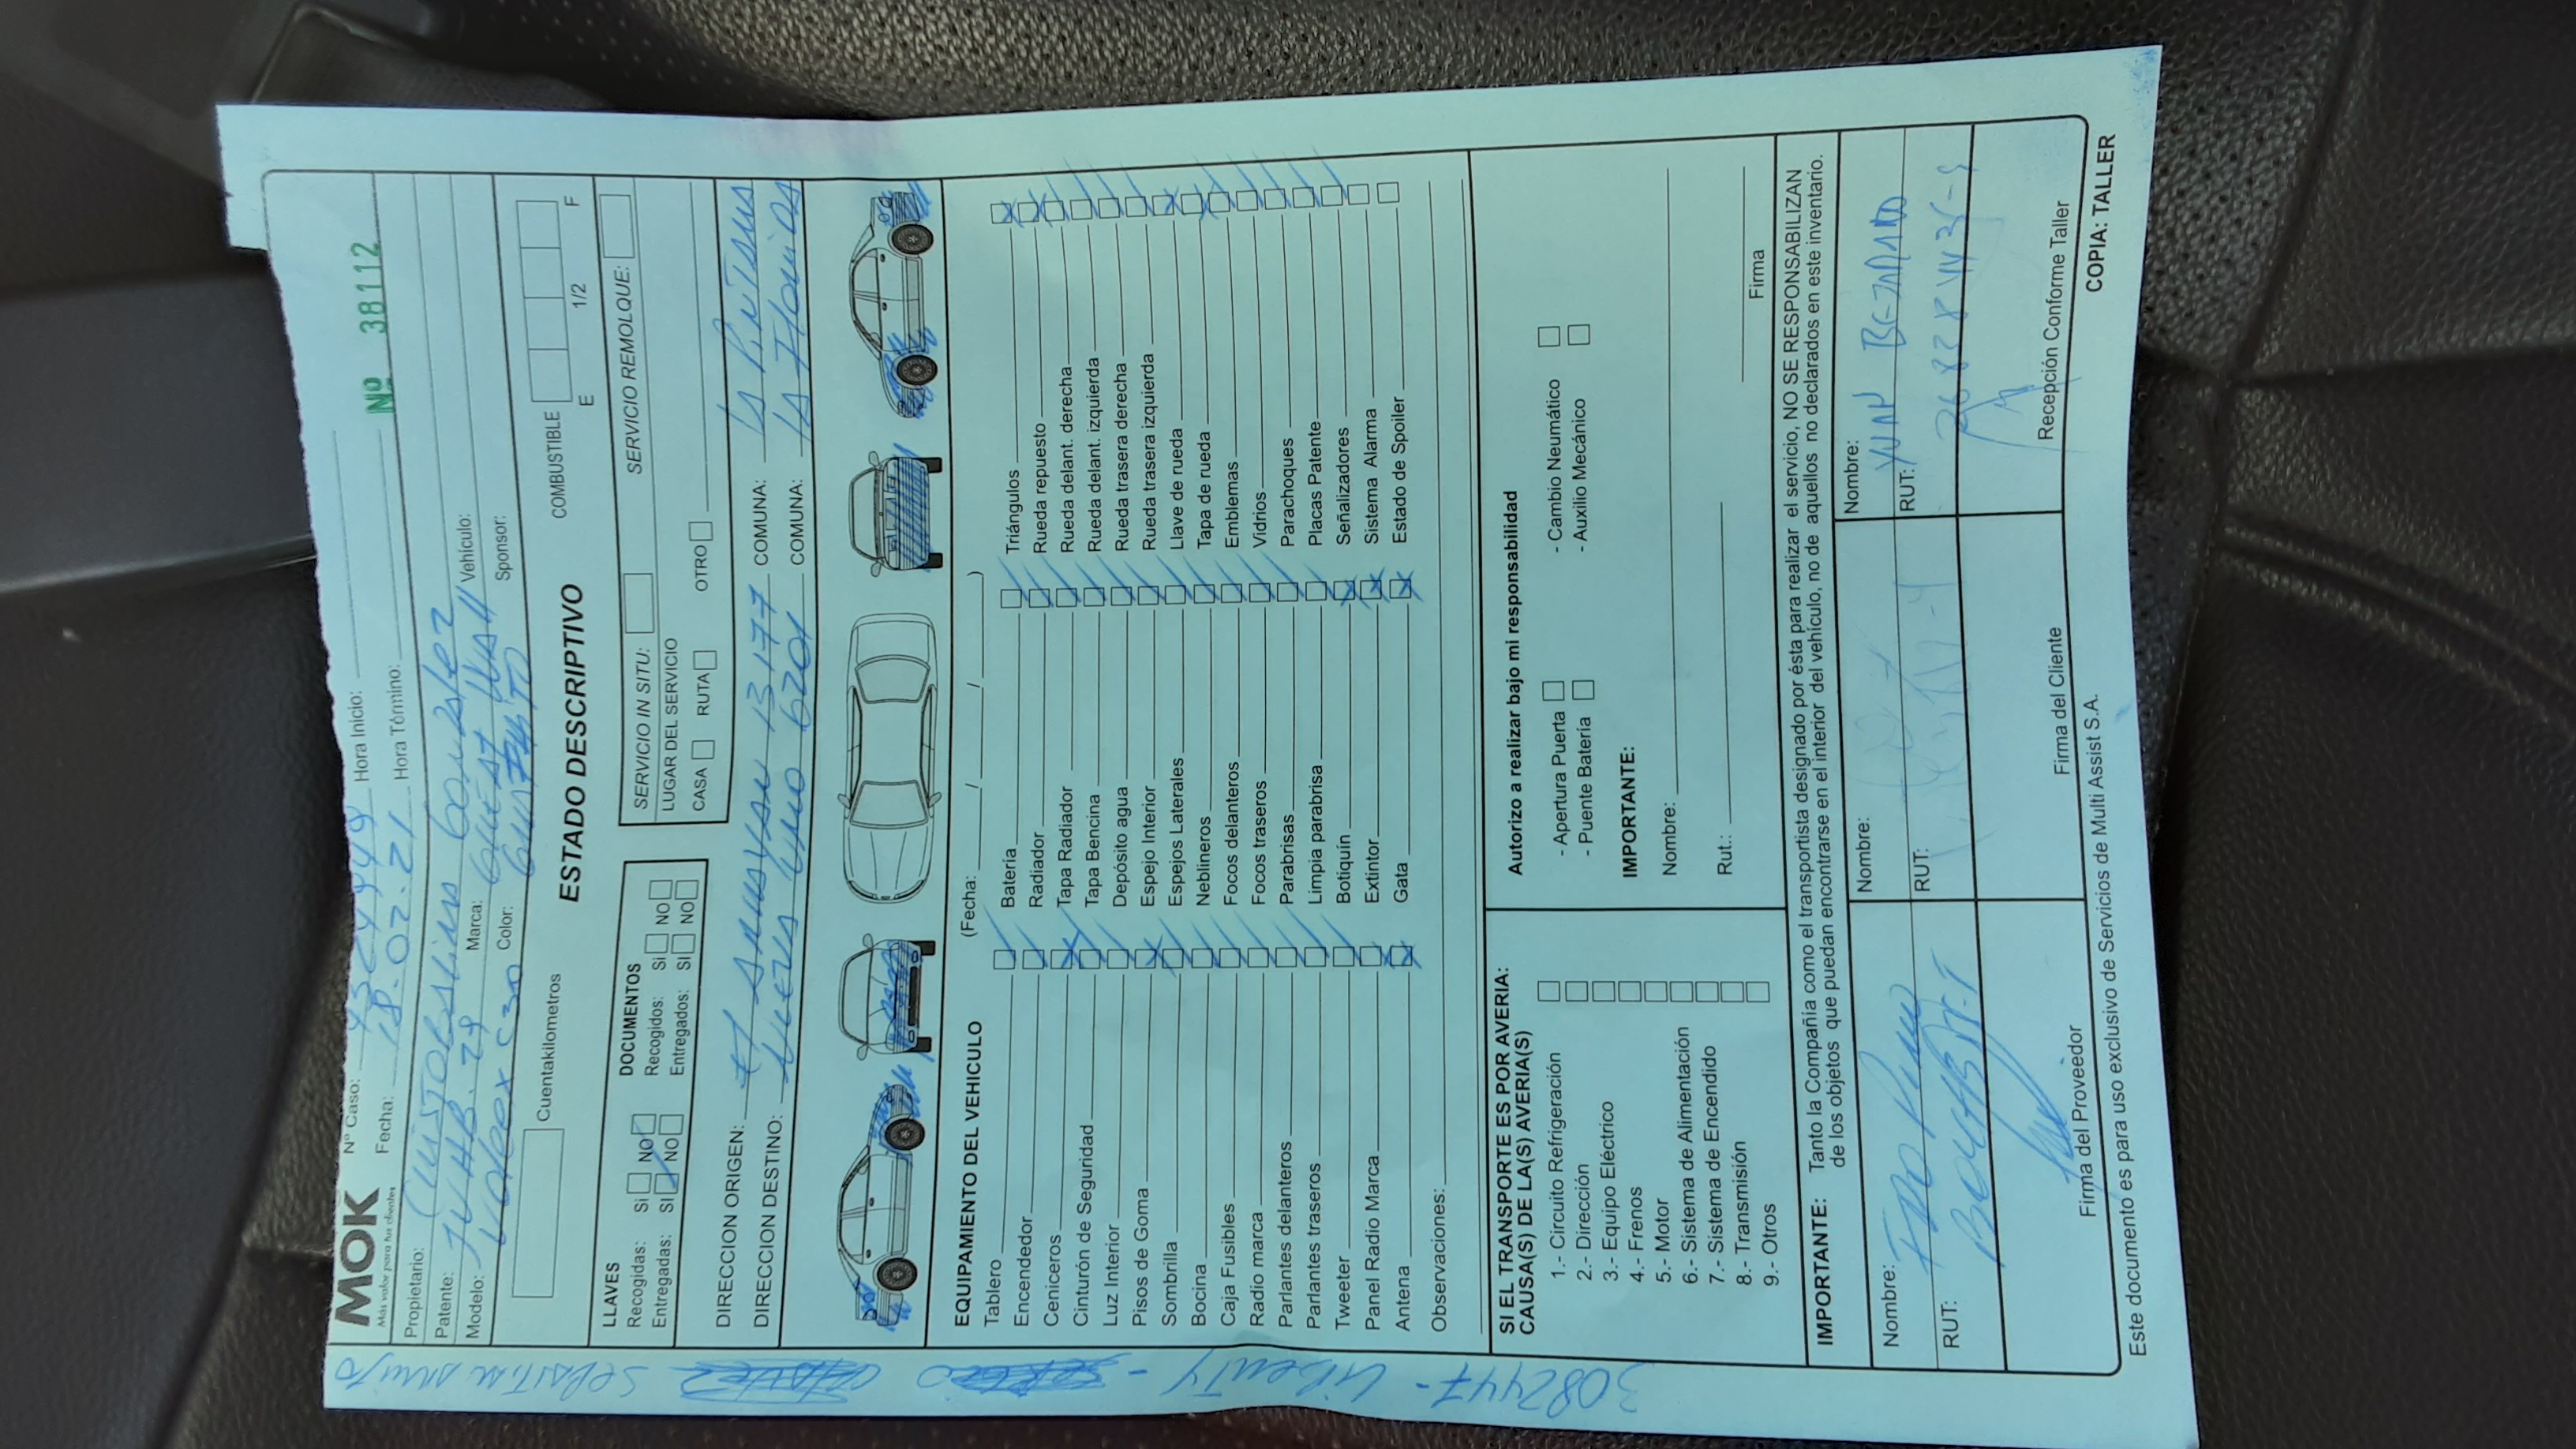 MOK
Más valor para tus clientes
Nº Caso: Hora Inicio:
Nº 38112
Fecha: 18.02.21 Hora Término:
Propietario: González
Patente: Marca: Great Wall Vehículo:
Modelo: Voleex C30 Color: Sponsor:
Cuentakilometros
ESTADO DESCRIPTIVO
COMBUSTIBLE
E 1/2 F
LLAVES
Recogidas: Si NO
Entregadas: SI NO
DOCUMENTOS
Recogidos: Si NO
Entregados: SI NO
SERVICIO IN SITU: SERVICIO REMOLQUE:
LUGAR DEL SERVICIO
CASA RUTA OTRO
DIRECCION ORIGEN: 13177 COMUNA: La Pintana
DIRECCION DESTINO: COMUNA: La Florida
EQUIPAMIENTO DEL VEHICULO (Fecha: / / )
Tablero Batería Triángulos
Encendedor Radiador Rueda repuesto
Ceniceros Tapa Radiador Rueda delant. derecha
Cinturón de Seguridad Tapa Bencina Rueda delant. izquierda
Luz Interior Depósito agua Rueda trasera derecha
Pisos de Goma Espejo Interior Rueda trasera izquierda
Sombrilla Espejos Laterales Llave de rueda
Bocina Neblineros Tapa de rueda
Caja Fusibles Focos delanteros Emblemas
Radio marca Focos traseros Vidrios
Parlantes delanteros Parabrisas Parachoques
Parlantes traseros Limpia parabrisa Placas Patente
Tweeter Botiquín Señalizadores
Panel Radio Marca Extintor Sistema Alarma
Antena Gata Estado de Spoiler
Observaciones:
SI EL TRANSPORTE ES POR AVERIA:
CAUSA(S) DE LA(S) AVERIA(S)
1.- Circuito Refrigeración
2.- Dirección
3.- Equipo Eléctrico
4.- Frenos
5.- Motor
6.- Sistema de Alimentación
7.- Sistema de Encendido
8.- Transmisión
9.- Otros
Autorizo a realizar bajo mi responsabilidad
- Apertura Puerta - Cambio Neumático
- Puente Batería - Auxilio Mecánico
IMPORTANTE:
Nombre:
Rut.:
Firma
IMPORTANTE: Tanto la Compañía como el transportista designado por ésta para realizar el servicio, NO SE RESPONSABILIZAN
de los objetos que puedan encontrarse en el interior del vehículo, no de aquellos no declarados en este inventario.
Nombre: Nombre: Nombre:
RUT: RUT: RUT:
Firma del Proveedor Firma del Cliente Recepción Conforme Taller
Este documento es para uso exclusivo de Servicios de Multi Assist S.A.
COPIA: TALLER
3082447 - Liberty -